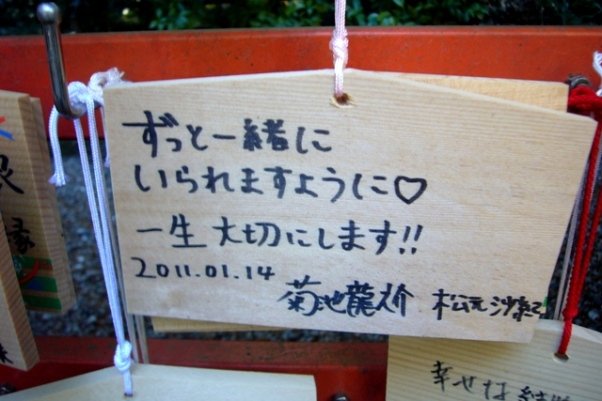 ずっと一緒に
いられますように♡
一生大切にします!!
2011.01.14
菊池龍介 松元沙紀
幸せな結
縁